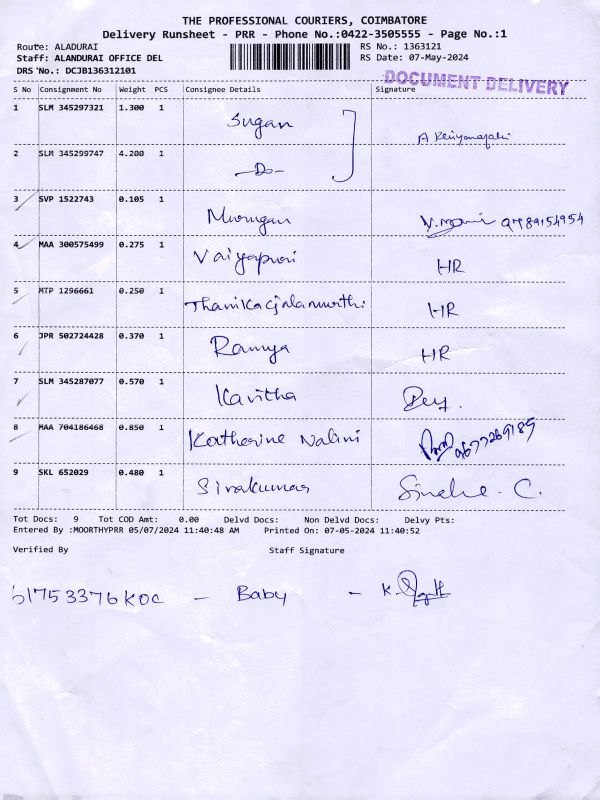 THE PROFESSIONAL COURIERS, COIMBATORE
Delivery Runsheet - PRR - Phone No.:0422-3505555 - Page No.:1
Route: ALADURAI
RS No.: 1363121
Staff: ALANDURAI OFFICE DEL
RS Date: 07-May-2024
DRS No.: DCJB136312101
DOCUMENT DELIVERY
S No Consignment No Weight PCS Consignee Details Signature
1 SLM 345297321 1.300 1 Sugan
2 SLM 345299747 4.200 1 -Do-
3 SVP 1522743 0.105 1 Murugan V.mani 9789154954
4 MAA 300575499 0.275 1 Vaiyapuri HR
5 MTP 1296661 0.250 1 Thanikacjalamurthi HR
6 JPR 502724428 0.370 1 Ramya HR
7 SLM 345287077 0.570 1 Kavitha
8 MAA 704186468 0.850 1 Katherine Nalini 9677269189
9 SKL 652029 0.480 1 Sivakumar C.
Tot Docs: 9 Tot COD Amt: 0.00 Delvd Docs: Non Delvd Docs: Delvy Pts:
Entered By :MOORTHYPRR 05/07/2024 11:40:48 AM Printed On: 07-05-2024 11:40:52
Verified By Staff Signature
61753376KOC - Baby - K.